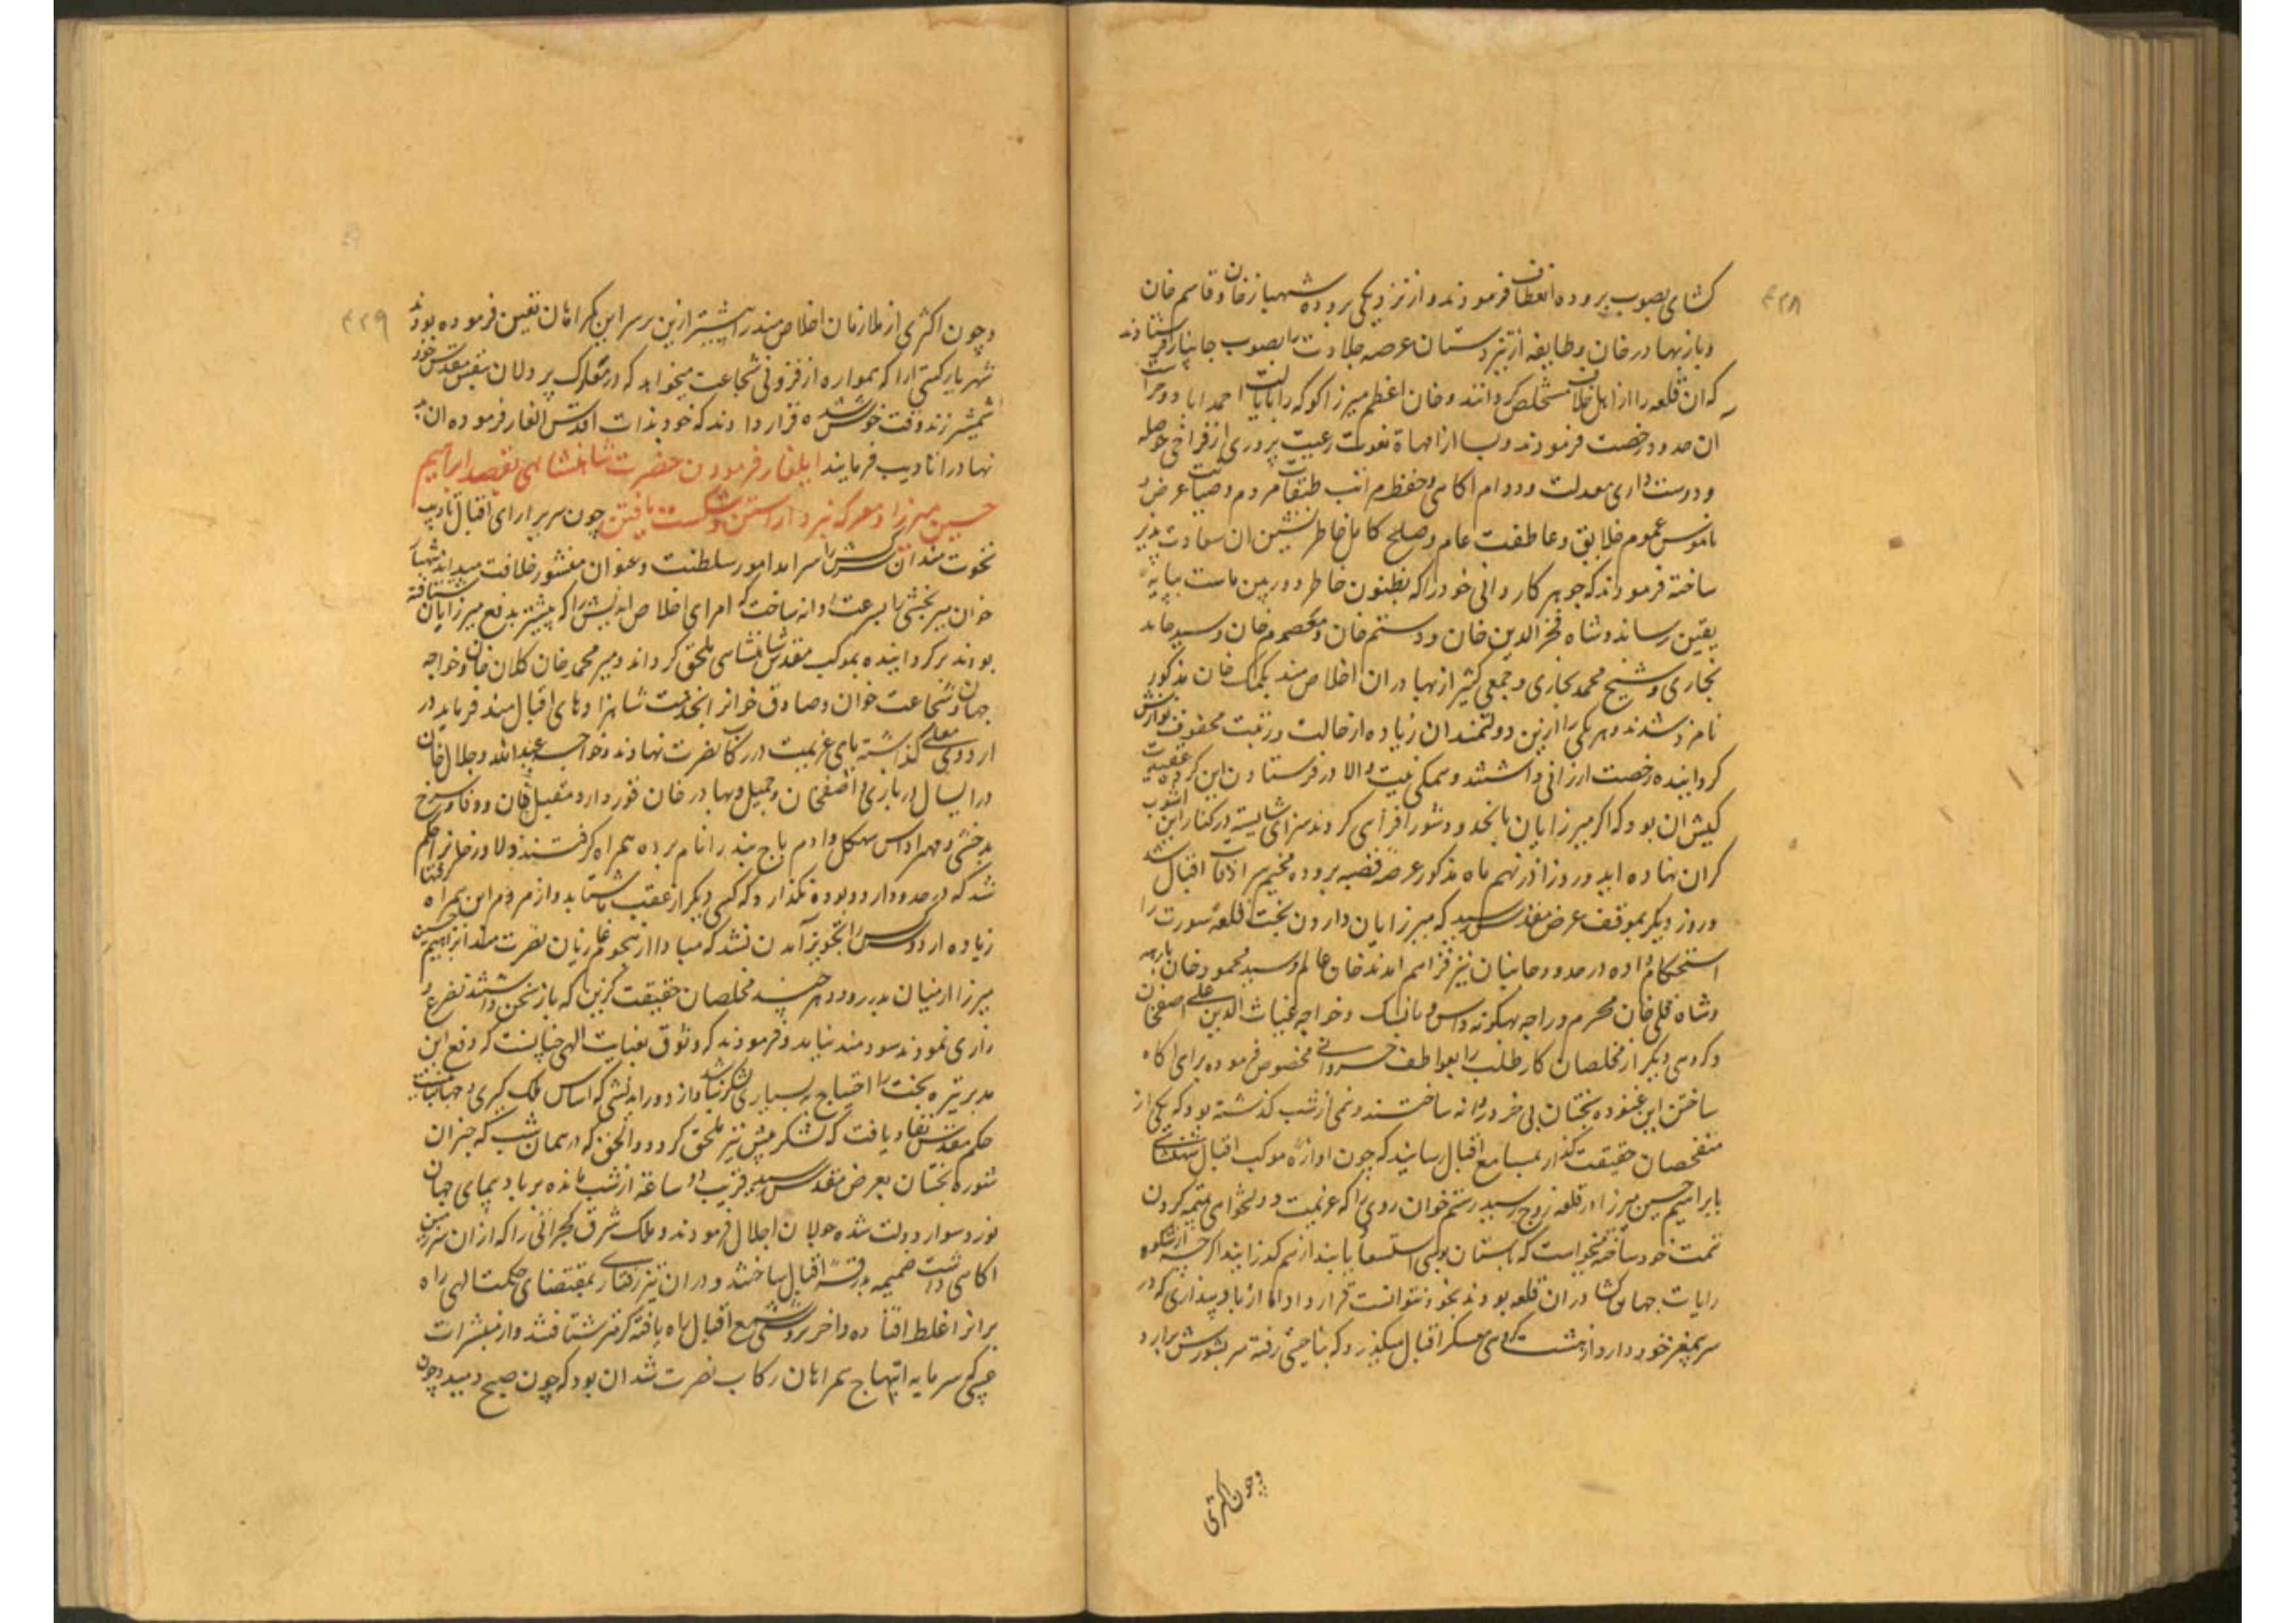 ۴۲۸
کشای بصوب بروده انعطاف فرمودند و از نزدیکی بروده شهباز خان و قاسم خان
و باز بهادر خان و طایفه از تیزدستان عرصه جلادت را بصوب جانپانیر فرستادند
که ان قلعه را از اهل خلاف مستخلص کردانند و خان اعظم میرزا کوکه را بایالت احمداباد و حراست
ان حدود رخصت فرمودند و بسا از امهات نعوت رعیت پروری از فراخی حوصله
و دوست داری معدلت و دوام اکاهی و حفظ مراتب طبقات مردم و صیانت عرض و
ناموس عموم خلایق و عاطفت عام و صلح کامل خاطر نشین ان سعادت پذیر
ساخته فرمودند که جوهر کاردانی خود را که بظنون خاطر دوربین ماست بپایه
یقین رساند و شاه فخرالدین خان و دوستم خان و معصوم خان و سید حامد
بخاری و شیخ محمد بخاری و جمعی کثیر از بهادران اخلاص مند بکمک خان مذکور
نامزد شدند و هر یکی را ازین دولتمندان زیاده از حالت و رتبت محفوف نوازش
کردانیده رخصت ارزانی داشتند و همکی نیت والا در فرستادن این کروه عقیدت
کیش ان بود که اکر میرزایان بانحدود شورافزائی کردند سزای شایسته در کنار این اشوب
کران نهاده اید و روز اذر نهم ماه مذکور عرصه قصبه بروده مخیم سرادقات اقبال شد
و روز دیکر بموقف عرض مقدس رسید که میرزایان وارون بخت قلعه سورت را
استحکام داده در حدود جانپانیر فراهم امدند خان عالم و سید محمود خان بارهه
و شاه قلی خان محرم و راجه بهکونت داس و مانسنک و خواجه غیاث الدین علی اصفخان
و کروهی دیکر از مخلصان کارطلب را بعواطف خسروانی مخصوص فرموده برای اکاه
ساختن این غنوده بختان بی خرد روانه ساختند و نیمی از شب کذشته بود که یکی از
متفحصان حقیقت کذار بمسامع اقبال رسانید که چون اوازه موکب اقبال شهنشاهی
بابراهیم حسین میرزا در قلعه بروج رسید رستم خوان رومی را که عزیمت دولتخواهی تتمه کردن
تمت خود ساخته میخواست که باستان بوسی استسعاد یابد از هم کذرانید اکرچه از شکوه
رایات جهانکشا دران قلعه بودن بخود نتوانست قرار داد اما از باد پنداری که در
سر بیمغز خود دارد از هشت کروهی معسکر اقبال میکذرد که بناحیتی رفته سر بشورش برارد
و چون اکثری
۴۲۹
و چون اکثری از ملازمان اخلاص مند را پیشتر ازین برسر این کمراهان تعین فرموده بودند
شهریار کیتی ارا که همواره از فزونی شجاعت میخواهد که در معارک پردلان بنفس مقدس خود
شمشیر زند وقت خوش شده قرار دادند که خود بذات اقدس ایلغار فرموده ان بد
نهادرا تادیب فرمایند ایلغار فرمودن حضرت شاهنشاهی بقصد ابراهیم
حسین میرزا و معرکه نبرد اراستن و شکست یافتن چون سریرارای اقبال تادیب
نخوت مندان سرکش را سرامد امور سلطنت و عنوان منشور خلافت میداند شهباز
خوان میربخشی را بسرعت روانه ساخت که امرای اخلاص اندیش را که پیشتر بدفع میرزایان شتافته
بودند برکردانیده بموکب مقدس شاهنشاهی ملحق کرداند و میر محمد خان کلان خان و خواجه
جهان و شجاعت خوان و صادق خوانرا بخدمت شاهزادهای اقبال مند فرماید در
اردوی معلی کذاشته پای عزیمت در رکاب نصرت نهادند و خواجه عبدالله و جلال خان
درایسال دربار و اصفخان و جمیل و بهادر خان قوردار و مقبل خان و وفا و سرخ
بدخشی و مهر اداس سهکل و ادم تاج بند را نام برده همراه کرفتند و دلاور خانرا حکم
شد که در حدود اردو بوده نکذارد که کسی دیکر از عقب ما شتابد و از مردم این همراه کرفتها
زیاده از دو کس را تجویز آمدن نشد که مبادا از هجوم غازیان نصرت مند ابراهیم حسین
میرزا از میان بدر رود و هر چند مخلصان حقیقت کزین که یاز سخن داشتند تضرع و
زاری نمودند سودمند نیامد و فرمودند که وثوق بعنایت الهی چنانست که دفع این
مدبر تیره بخت را احتیاج به بسیاری لشکر نباشد و از دور اندیشی که اساس ملک کیری و جهانبانیست
حکم مقدس نفاذ یافت که لشکر پیش نیز ملحق کردد و الحق که در همان شب که خبر ان
شوره بختان بعرض مقدس رسید قریب دو ساعته از شب مانده بر بادپیمای جهان
نورد سوار دولت شده جولان اجلال فرمودند و ملک شرق کجراتی را که از ان سرزمین
اکاهی داشت ضمیمه بدرقه اقبال ساختند و دران تیز رفتاری بمقتضای حکمت الهی راه
برانرا غلط افتاده و اخر بروشنی شمع اقبال راه یافته کرمتر شتافتند و از مبشرات
غیبی که سرمایه ابتهاج همراهان رکاب نصرت شد ان بود که چون صبح دمید و چون